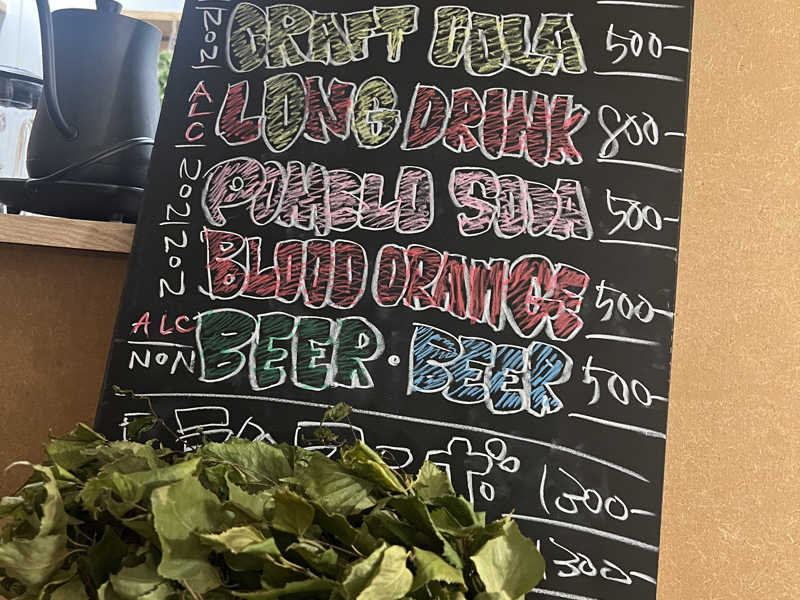 NON CRAFT COLA 500-
ALC LONG DRINK 800-
NON POMELO SODA 500-
NON BLOOD ORANGE 500-
ALC NON BEER・BEER 500-
ポ 1300-
1300-